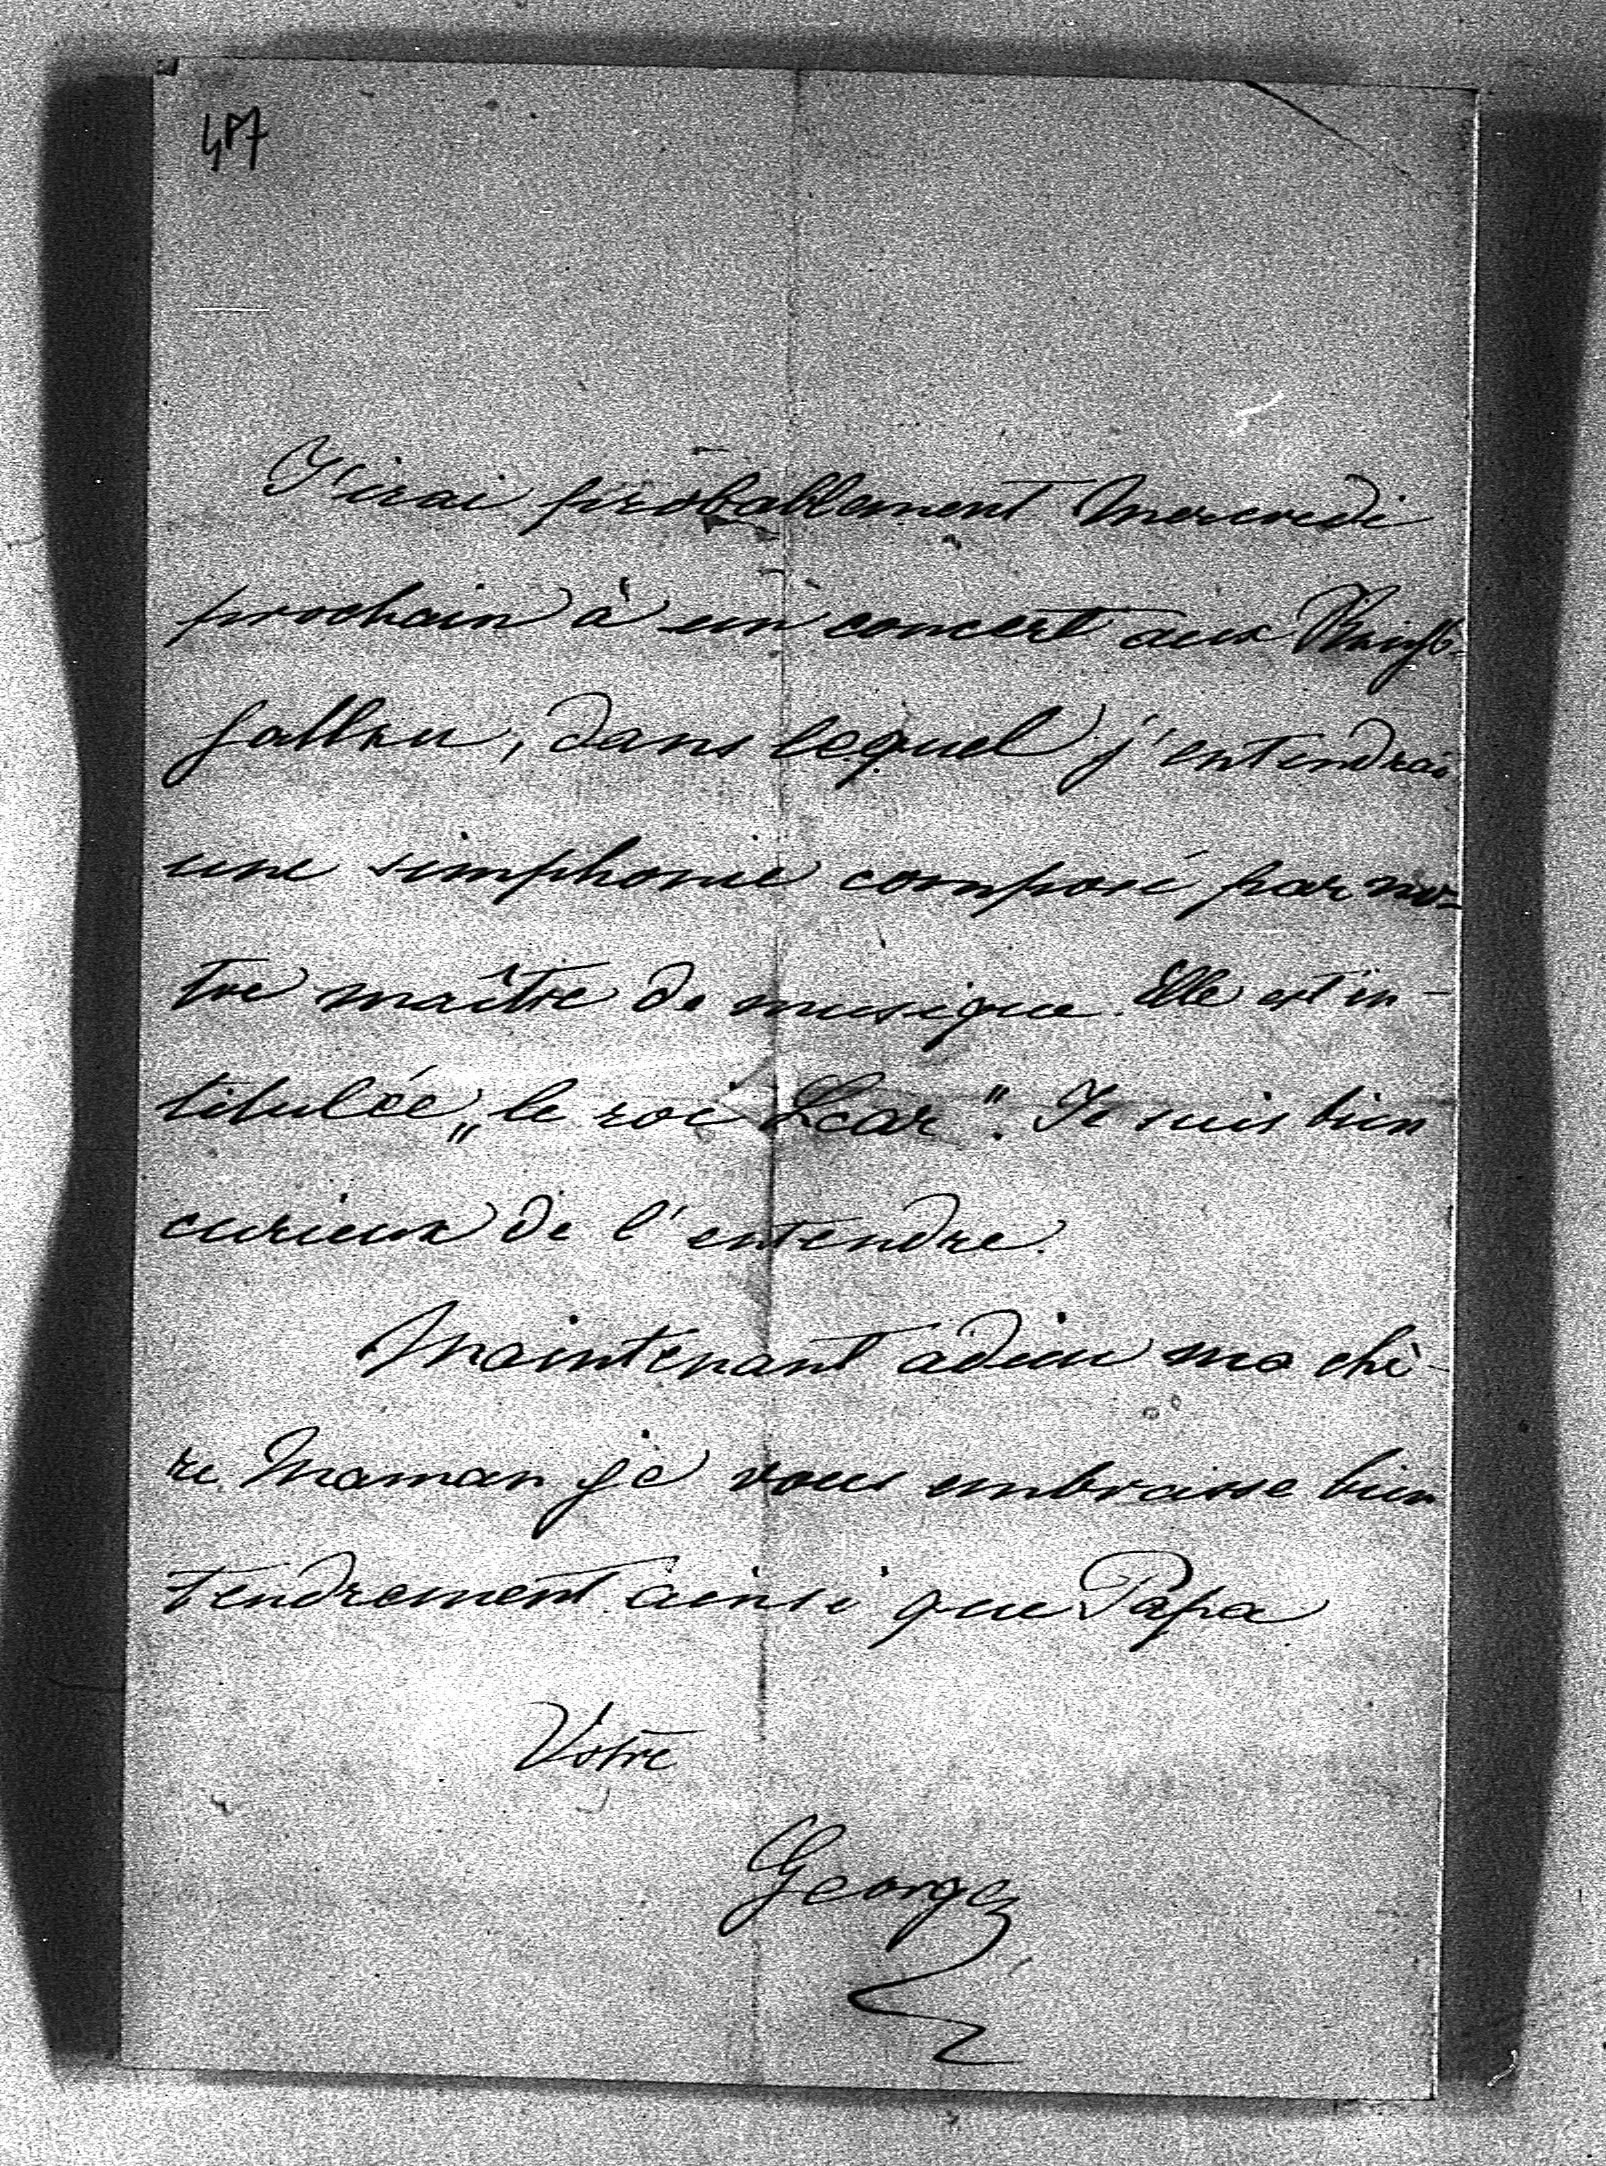 487
J'irai probablement Mercredi
prochain à un concert aux
, dans lequel j'entendrai
une simphonie composé par no-
tre maître de musique. Elle est in-
titulée „le roi Lear". Je suis bien
curieux de l'entendre.
Maintenant adieu ma chè-
re Maman je vous embrasse bien
tendrement ainsi que Papa
Votre
George